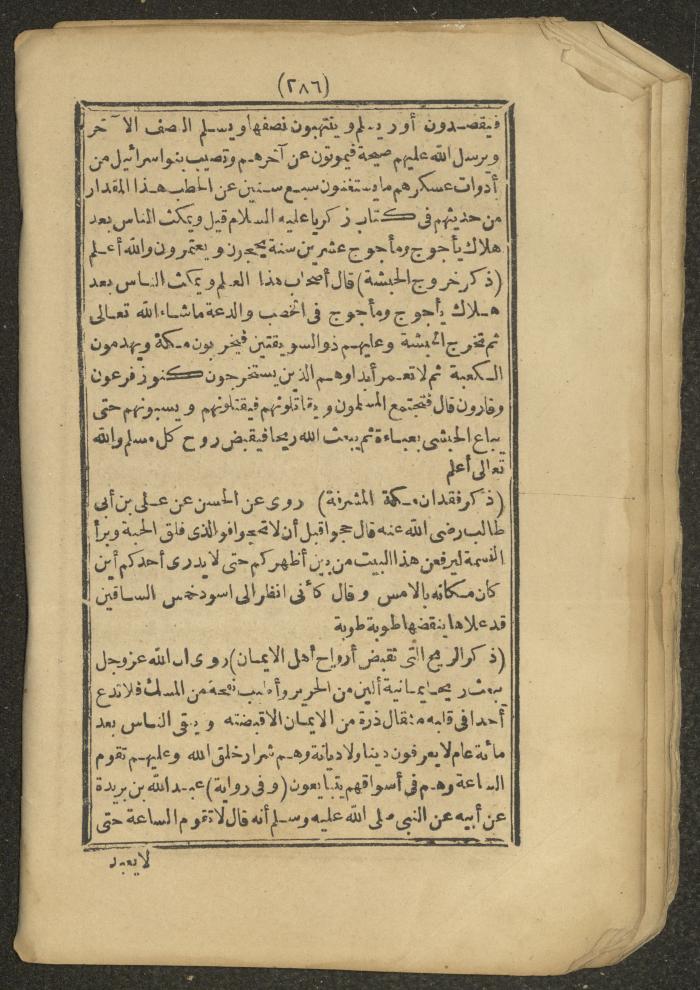 (٢٨٦)
فيقصدون أوريشلم وينتهبون نصفها ويسلم النصف الآخر
ويرسل الله عليهم صيحة فيموتون عن آخرهم وتصيب بنو اسرائيل من
أدوات عسكرهم ما يستغنون سبع سنين عن الحطب هذا المقدار
من حديثهم فى كتاب زكريا عليه السلام قيل ويمكث الناس بعد
هلاك يأجوج ومأجوج عشرين سنة يحجون ويعتمرون والله أعلم
(ذكر خروج الحبشة) قال أصحاب هذا العلم ويمكث الناس بعد
هلاك يأجوج ومأجوج فى الخصب والدعة ما شاء الله تعالى
ثم تخرج الحبشة وعليهم ذو السويقتين فيخربون مكة ويهدمون
الكعبة ثم لا تعمر أبدا وهم الذين يستخرجون كنوز فرعون
وقارون قال فتجتمع المسلمون ويقاتلونهم فيقتلونهم ويسبونهم حتى
يباع الحبشى بعباءة ثم يبعث الله ريحا فيقبض روح كل مسلم والله
تعالى أعلم
(ذكر فقدان مكة المشرفة) روى عن الحسن عن على بن أبى
طالب رضى الله عنه قال حجوا قبل أن لا تحجوا فوالذى فلق الحبة وبرأ
النسمة ليرفعن هذا البيت من بين أظهركم حتى لا يدرى أحدكم أين
كان مكانه بالامس وقال كأنى انظر الى اسود خمس الساقين
قد علاها ينقضها طوبة طوبة
(ذكر الريح التى تقبض أرواح أهل الايمان) روى ان الله عز وجل
يبعث ريحا يمانية ألين من الحرير وأطيب نفحة من المسك فلا تدع
أحدا فى قلبه مثقال ذرة من الايمان الا قبضته ويبقى الناس بعد
مائة عام لا يعرفون دينا ولا ديانة وهم شرار خلق الله وعليهم تقوم
الساعة وهم فى أسواقهم يتبايعون (وفى رواية) عبد الله بن بريدة
عن أبيه عن النبى صلى الله عليه وسلم أنه قال لا تقوم الساعة حتى
لا يعبد